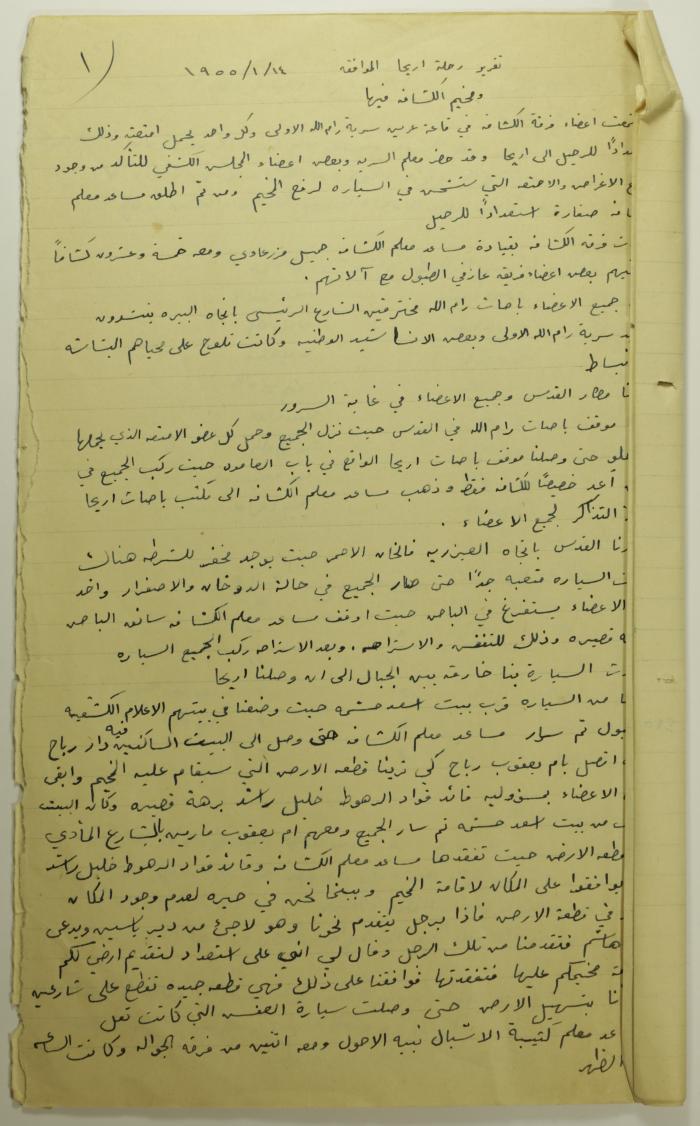 ١
تقرير رحلة اريحا الموافقه ١٩٥٥/١/١٤
ومخيم الكشافه فيها
اعضاء فرقة الكشافه في قاعة عرين سرية رام الله الاولى وكل واحد يحمل امتعته وذلك
للرحيل الى اريحا وقد حضر معلم السريه وبعض اعضاء المجلس الكشفي للتأكد من وجود
الاغراض والامتعه التي ستشحن في السياره لرفع المخيم ومن ثم اطلق مساعد معلم
صفارة استعدادًا للرحيل
فرقة الكشافه بقيادة مساعد معلم الكشافه جميل ومعه خمسة وعشرون كشافاً
بعض اعضاء فريق عازفي الطبول مع آلاتهم .
جميع الاعضاء باصات رام الله مخترقين الشارع الرئيسي باتجاه البيره ينشدون
سرية رام الله الاولى وبعض الاناشيد الوطنيه وكانت تلوح على محياهم البشاشه
مطار القدس وجميع الاعضاء في غاية السرور
موقف باصات رام الله في القدس حيث نزل الجميع وحمل كل عضو الامتعه الذي يحملها
حتى وصلنا موقف باصات اريحا الواقع في باب العامود حيث ركب الجميع في
أعد خصيصًا للكشافه فقط وذهب مساعد معلم الكشافه الى مكتب باصات اريحا
التذاكر لجميع الاعضاء .
القدس باتجاه العيزريه فالخان الاحمر حيث يوجد مخفر للشرطه هناك
السياره متعبه جدًا حتى صار الجميع في حالة الدوخان والاصفرار واخذ
الاعضاء يستفرغ في الباص حيث اوقف مساعد معلم الكشافه سائق الباص
قصيره وذلك للتنفس والاستراحه . وبعد الاستراحه ركب الجميع السياره
السيارة بنا خارقه بين الجبال الى ان وصلنا اريحا
من السياره قرب بيت اسعد حشمه حيث وضعنا في بيتهم الاعلام الكشفيه
ثم سار مساعد معلم الكشافه حتى وصل الى البيت الساكنين فيه دار رباح
اتصل بام يعقوب رباح كي ترينا قطعه الارض التي سيقام عليه المخيم وابقى
الاعضاء بمسؤوليه قائد قواد الرهوط خليل راشد برهة قصيره وكان البيت
من بيت اسعد حشمه ثم سار الجميع ومعهم ام يعقوب مارين بالشارع المأدي
الارض حيث تفقدها مساعد معلم الكشافه وقائد قواد الرهوط خليل راشد
يوافقوا على المكان لاقامة المخيم وبينما نحن في حيره لعدم وجود المكان
في قطعة الارض فاذا برجل يتقدم نحونا وهو لاجئ من دير ياسين ويدعى
هاشم فتقدمنا من تلك الرجل وقال لي اني على استعداد لتقديم ارضي لكم
مخيمكم عليها فتفقدتها فوافقنا على ذلك فهي قطعه جيده تقطع على شارعين
بتسهيل الارض حتى وصلت سيارة العفش التي كانت تقل
معلم كتيبة الاشبال نبيه الاحول ومعه اثنين من فرقه الجواله وكانت الساعه
الظهر